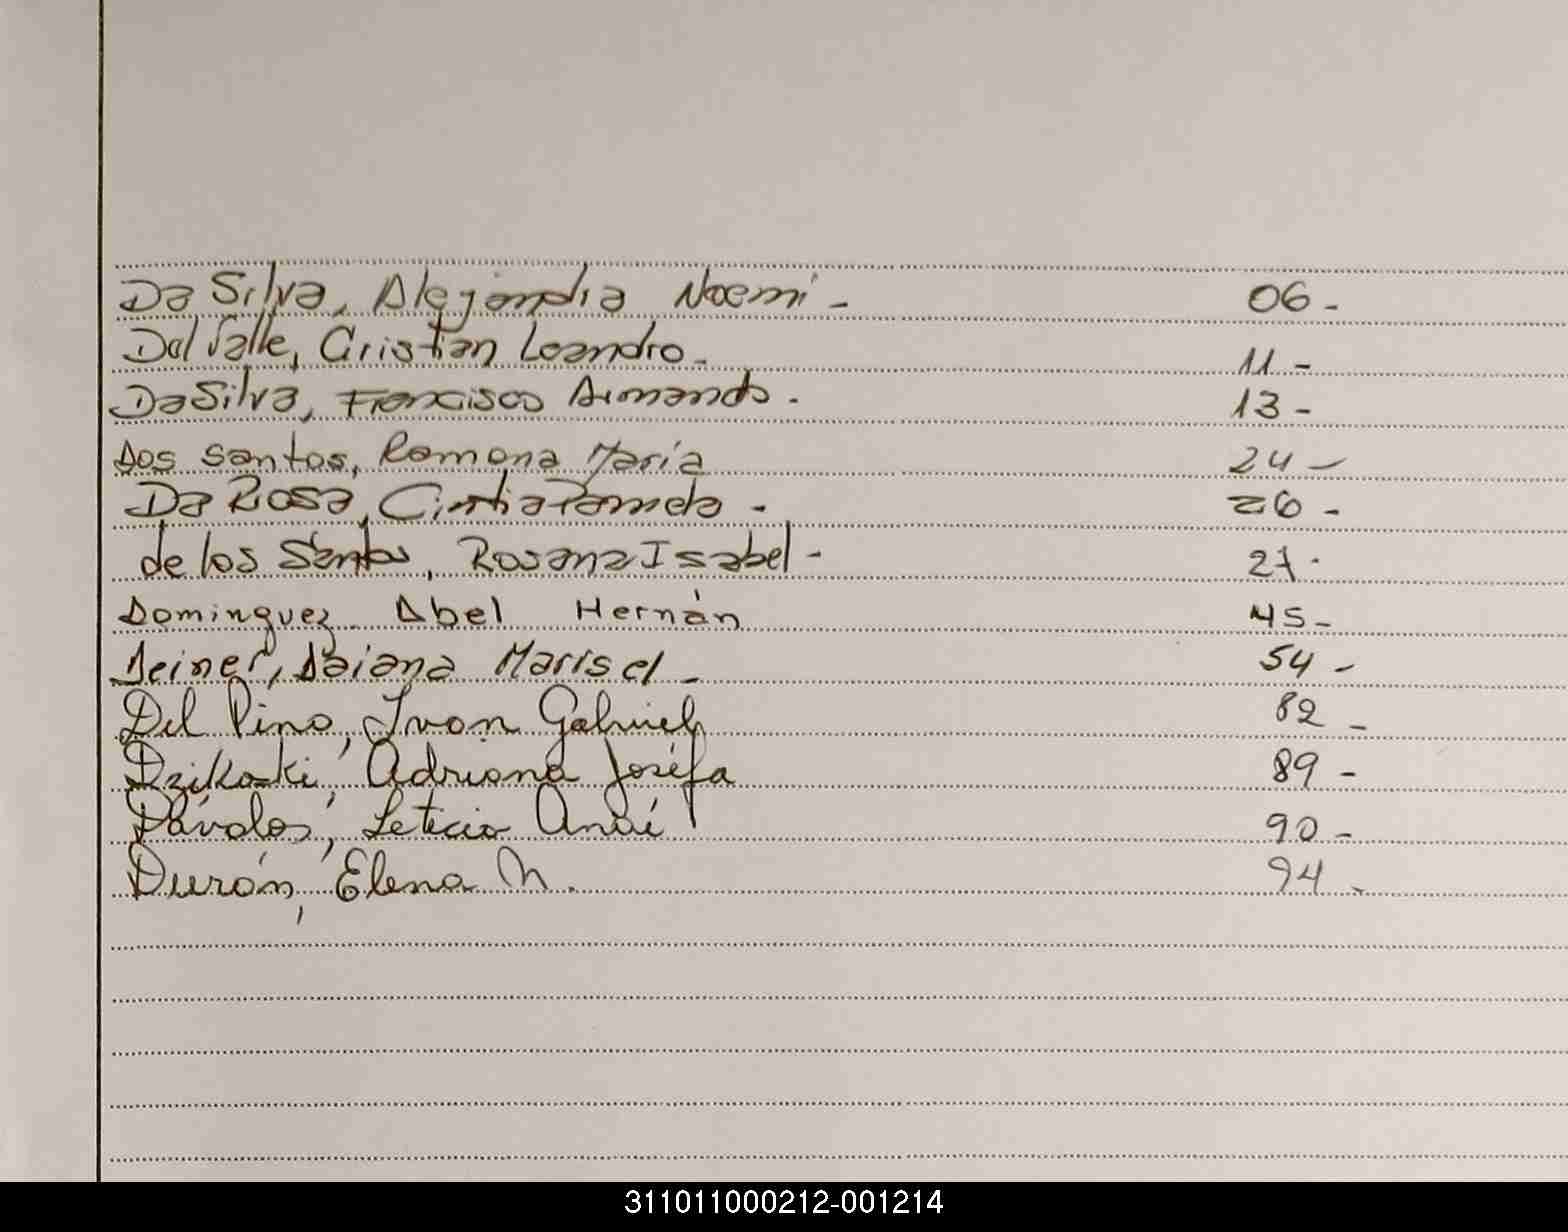 Da Silva, Alejandra Noemi - 06 -
Del Valle, Cristian Leandro - 11 -
Da Silva, Francisco Armando - 13 -
Dos Santos, Ramona María 24 -
Da Rosa, Cintia Pamela - 26 -
de los Santos, Rosana Isabel - 27 -
Dominguez Abel Hernàn 45 -
Deiner, Daiana Marisel - 54 -
Del Pino, Ivon Gabriel 82 -
Dzikoski, Adriana Joséfa 89 -
Dávalos, Leticia Anaí 90 -
Durón, Elena M. 94 -
311011000212-001214